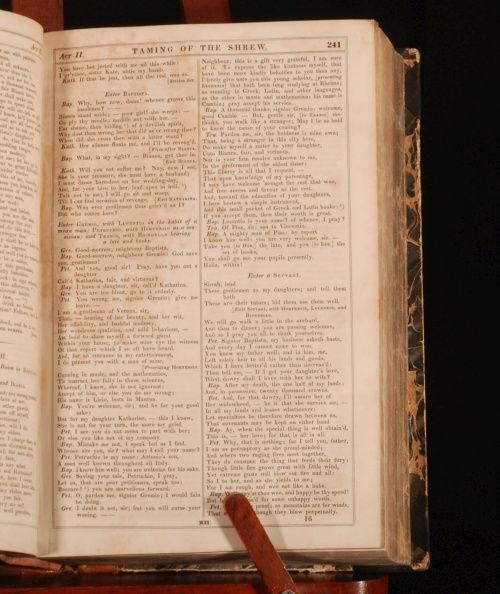 Act II.
TAMING OF THE SHREW.
241
You have but jested with me all this while:
I pr'ythee, sister Kate, untie my hands.
Kath. If that be jest, then all the rest was so.
[Strikes her.
Enter BAPTISTA.
Bap. Why, how now, dame! whence grows this
insolence? —
Bianca stand aside; — poor girl! she weeps: —
Go ply thy needle; meddle not with her. —
For shame, thou hilding of a devilish spirit,
Why dost thou wrong her that did ne'er wrong thee?
When did she cross thee with a bitter word?
Kath. Her silence flouts me, and I'll be reveng'd.
[Flies after BIANCA.
Bap. What, in my sight? — Bianca, get thee in.
[Exit BIANCA.
Kath. Will you not suffer me? Nay, now I see,
She is your treasure, she must have a husband;
I must dance bare-foot on her wedding-day,
And, for your love to her, lead apes in hell.
Talk not to me; I will go sit and weep,
Till I can find occasion of revenge. [Exit KATHARINA.
Bap. Was ever gentleman thus griev'd as I?
But who comes here?
Enter GREMIO, with LUCENTIO in the habit of a
mean man; PETRUCHIO, with HORTENSIO as a mu-
sician; and TRANIO, with BIONDELLO bearing
a lute and books.
Gre. Good-morrow, neighbour Baptista.
Bap. Good-morrow, neighbour Gremio: God save
you, gentlemen!
Pet. And you, good sir! Pray, have you not a
daughter
Call'd Katharina, fair, and virtuous?
Bap. I have a daughter, sir, call'd Katharina.
Gre. You are too blunt, go to it orderly.
Pet. You wrong me, signior Gremio; give me
leave. —
I am a gentleman of Verona, sir,
That, — hearing of her beauty, and her wit,
Her affability, and bashful modesty,
Her wondrous qualities, and mild behaviour, —
Am bold to show myself a forward guest
Within your house, to make mine eye the witness
Of that report which I so oft have heard.
And, for an entrance to my entertainment,
I do present you with a man of mine,
[Presenting HORTENSIO.
Cunning in music, and the mathematics,
To instruct her fully in those sciences,
Whereof, I know, she is not ignorant:
Accept of him, or else you do me wrong;
His name is Licio, born in Mantua.
Bap. You're welcome, sir; and he for your good
sake:
But for my daughter Katharine, — this I know,
She is not for your turn, the more my grief.
Pet. I see you do not mean to part with her;
Or else you like not of my company.
Bap. Mistake me not, I speak but as I find.
Whence are you, sir? what may I call your name?
Pet. Petruchio is my name; Antonio's son,
A man well known throughout all Italy.
Bap. I know him well; you are welcome for his sake.
Gre. Saving your tale, Petruchio, I pray,
Let us, that are poor petitioners, speak too:
Baccare! you are marvellous forward.
Pet. O, pardon me, signior Gremio; I would fain
be doing.
Gre. I doubt it not, sir; but you will curse your
wooing. — —
Neighbour, this is a gift very grateful, I am sure
of it. To express the like kindness myself, that
have been more kindly beholden to you than any,
I freely give unto you this young scholar, [presenting
LUCENTIO] that hath been long studying at Rheims;
as cunning in Greek, Latin, and other languages,
as the other in music and mathematics: his name is
Cambio; pray accept his service.
Bap. A thousand thanks, signior Gremio: welcome,
good Cambio. — But, gentle sir, [to TRANIO] me-
thinks, you walk like a stranger; May I be so bold
to know the cause of your coming?
Tra. Pardon me, sir, the boldness is mine own;
That, being a stranger in this city here,
Do make myself a suitor to your daughter,
Unto Bianca, fair, and virtuous.
Nor is your firm resolve unknown to me,
In the preferment of the eldest sister:
This liberty is all that I request, —
That, upon knowledge of my parentage,
I may have welcome 'mongst the rest that woo,
And free access and favour as the rest.
And, toward the education of your daughters,
I here bestow a simple instrument,
And this small packet of Greek and Latin books:
If you accept them, then their worth is great.
Bap. Lucentio is your name? of whence, I pray?
Tra. Of Pisa, sir; son to Vincentio.
Bap. A mighty man of Pisa: by report
I know him well: you are very welcome, sir. —
Take you [to HOR.] the lute, and you [to LUC.] the
set of books,
You shall go see your pupils presently.
Holla, within!
Enter a SERVANT.
Sirrah, lead
These gentlemen to my daughters; and tell them
both
These are their tutors; bid them use them well.
[Exit SERVANT, with HORTENSIO, LUCENTIO, and
BIONDELLO.
We will go walk a little in the orchard,
And then to dinner: you are passing welcome,
And so I pray you all to think yourselves.
Pet. Signior Baptista, my business asketh haste,
And every day I cannot come to woo.
You knew my father well; and in him, me,
Left solely heir to all his lands and goods,
Which I have better'd rather than decreas'd:
Then tell me, — If I get your daughter's love,
What dowry shall I have with her to wife?
Bap. After my death, the one half of my lands:
And, in possession, twenty thousand crowns.
Pet. And, for that dowry, I'll assure her of
Her widowhood, — be it that she survive me, —
In all my lands and leases whatsoever:
Let specialties be therefore drawn between us,
That covenants may be kept on either hand.
Bap. Ay, when the special thing is well obtain'd,
This is, — her love; for that is all in all.
Pet. Why, that is nothing; for I tell you, father,
I am as peremptory as she proud-minded;
And where two raging fires meet together,
They do consume the thing that feeds their fury:
Though little fire grows great with little wind,
Yet extreme gusts will blow out fire and all:
So I to her, and so she yields to me;
For I am rough, and woo not like a babe.
Bap. thou woo, and happy be thy speed!
But for some unhappy words.
Pet. proof; as mountains are for winds,
That though they blow perpetually.
RII
16